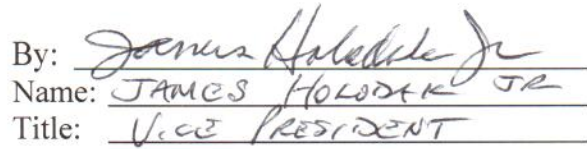 By: James Holodak Jr
Name: JAMES HOLODAK JR
Title: VICE PRESIDENT